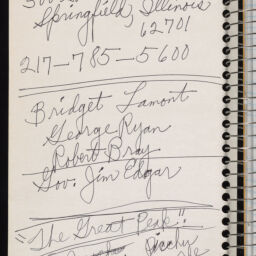 Springfield, Illinois
62701
217-785-5600
Bridget Lamont
George Ryan
Robert Bray
Gov. Jim Edgar
"The Great Peik".